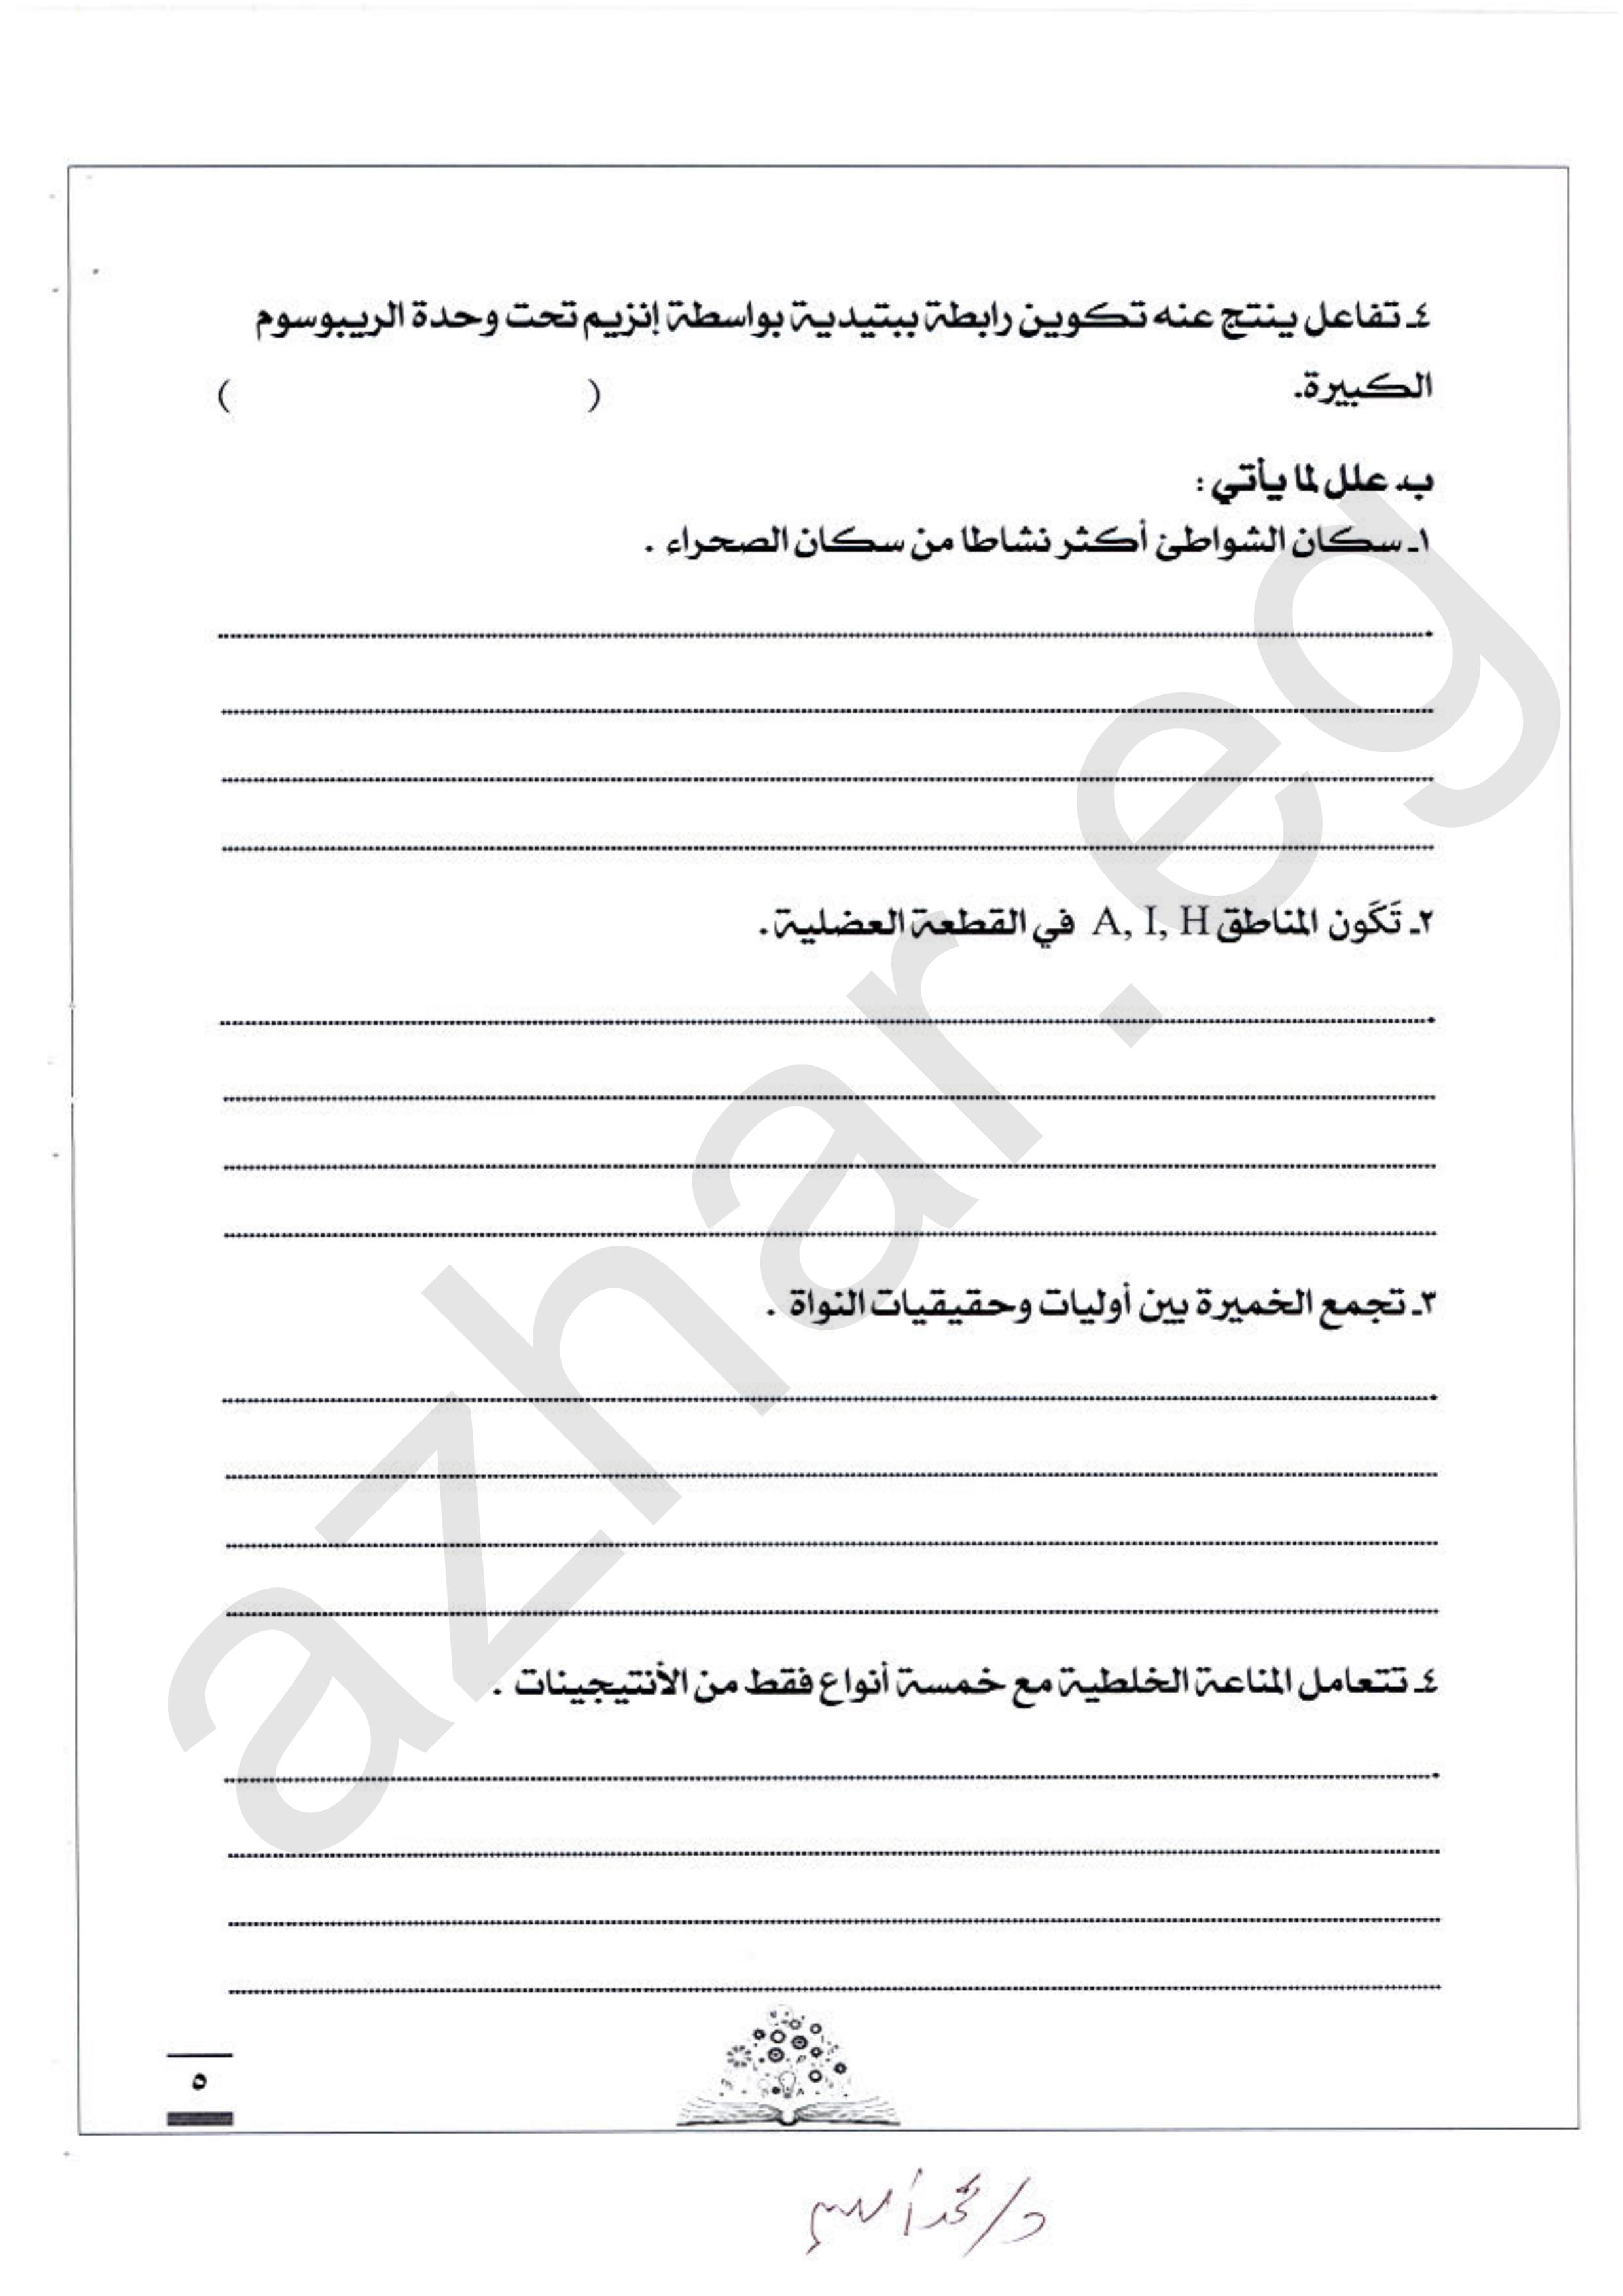 ٤ـ تفاعل ينتج عنه تكوين رابطة ببتيدية بواسطة إنزيم تحت وحدة الريبوسوم
الكبيرة. ( )
ب ـ علل لما يأتي :
١ـ سكان الشواطئ أكثر نشاطا من سكان الصحراء .
٢ـ تَكَون المناطق A, I, H في القطعة العضلية.
٣ـ تجمع الخميرة بين أوليات وحقيقيات النواة .
٤ـ تتعامل المناعة الخلطية مع خمسة أنواع فقط من الأنتيجينات .
٥
azhar.eg